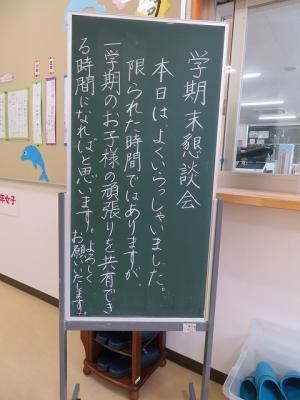 学期末懇談会
本日は、よくいらっしゃいました。
限られた時間ではありますが、
一学期のお子様の頑張りを共有でき
る時間になればと思います。よろしく
お願いいたします。
年女子